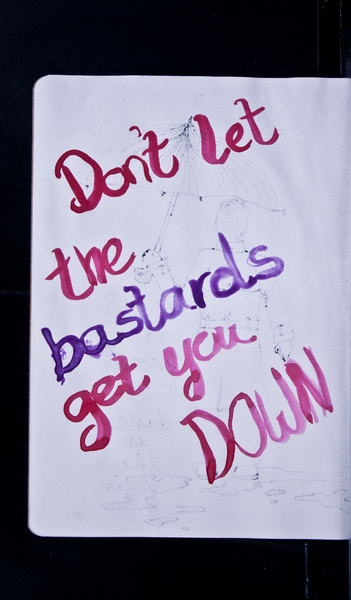 Don't let
the
bastards
get you
DOWN